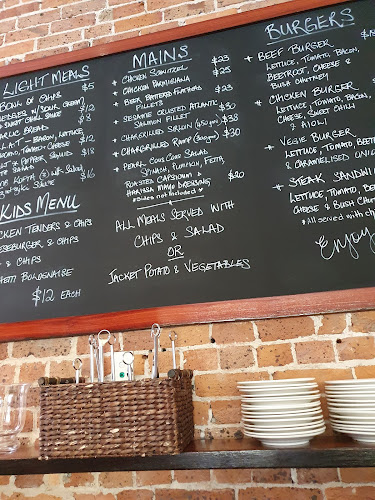 LIGHT MEALS
BOWL OF CHIPS $5
WEDGES W/ SOUR CREAM $12
& SWEET CHILLI SAUCE
GARLIC BREAD $8
B.L.A.T - BACON, LETTUCE,
TOMATO, $12
& PEPPER SQUID $18
W/ SALAD $16
KIDS MENU
CHICKEN TENDERS & CHIPS
CHEESEBURGER & CHIPS
& CHIPS
SPAGHETTI BOLOGNAISE
$12 EACH
MAINS
CHICKEN SCHNITZEL $23
CHICKEN PARMIGIANA $25
BEER BATTERED FLATHEAD $23
FILLETS
SESAME CRUSTED ATLANTIC $30
SALMON FILLET
CHARGRILLED SIRLOIN (450gm) $38
CHARGRILLED RUMP (300gm) $30
PEARL COUS COUS SALAD
SPINACH, PUMPKIN, FETA,
ROASTED CAPSICUM & $20
HARISSA MAYO DRESSING
*Sides not included*
ALL MEALS SERVED WITH
CHIPS & SALAD
OR
JACKET POTATO & VEGETABLES
BURGERS
BEEF BURGER
LETTUCE, TOMATO, BACON,
BEETROOT, CHEESE &
BUSH CHUTNEY
CHICKEN BURGER
LETTUCE, TOMATO, BACON,
CHEESE, SWEET CHILLI
& AIOLI
VEGIE BURGER
LETTUCE, TOMATO,
& CARAMELISED ONION
STEAK SANDWICH
LETTUCE, TOMATO,
CHEESE & BUSH
All served with
Enjoy